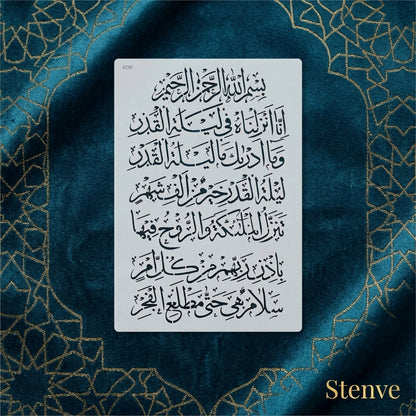 بسم الله الرحمن الرحيم
إنا أنزلناه في ليلة القدر
وما أدرىك ما ليلة القدر
ليلة القدر خير من ألف شهر
تنزل الملئكة والروح فيها
بإذن ربهم من كل أمر
سلام هي حتى مطلع الفجر
Stenve